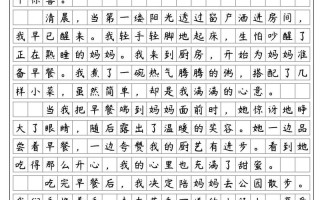 清晨，当第一缕阳光透过窗户洒进房间，
我早已醒来。我轻手轻脚地起床，生怕吵醒了
正在熟睡的妈妈。我来到厨房，开始为妈妈准
备早餐。我煮了一碗热气腾腾的粥，搭配了几
样小菜，虽然简单，却是我满满的心意。
当我把早餐端到妈妈面前时，她惊讶地睁
大了眼睛，随后露出了温暖的笑容。她一边品
尝着早餐，一边夸赞我的厨艺有进步。看到她
吃得那么开心，我的心里也充满了甜蜜。
吃完早餐后，我决定陪妈妈去公园散步。